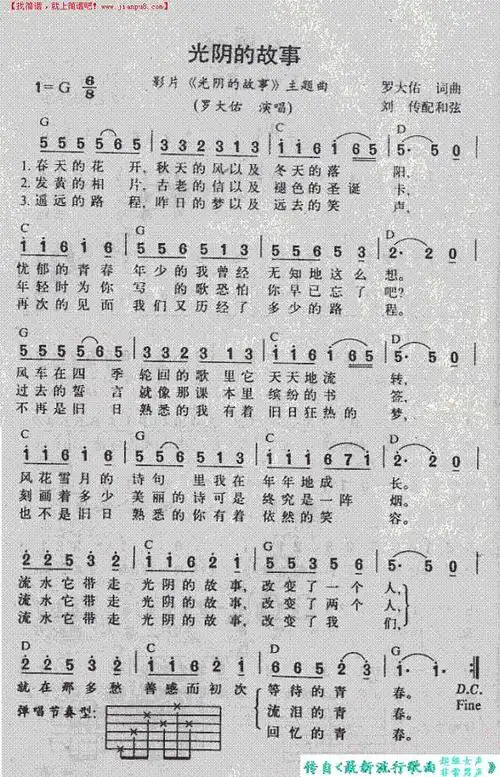 【找简谱，就上简谱吧！www.jianpu8.com】
光阴的故事
1=G 6/8
影片《光阴的故事》主题曲
(罗大佑 演唱)
罗大佑 词曲
刘 传配和弦
G C D
5 5 5 5 6 5 3 3 2 3 1 3 1 1 6 1 6 5 5· 5 0
1.春天的花 开,秋天的风以及 冬天的落 阳,
2.发黄的相 片,古老的信以及 褪色的圣诞 卡,
3.遥远的路 程,昨日的梦以及 远去的笑 声,
C G D
1 1 6 1 6 5 5 6 5 1 3 5 5 6 5 3 2· 2 0
忧郁的青春 年少的我曾经 无知地这么 想。
年轻时为你 写 的歌恐怕 你早已忘了 吧?
再次的见面 我们又历经了 多少的路 程。
G C D
5 5 5 5 6 5 3 3 2 3 1 3 1 1 6 1 6 5 5· 5 0
风车在四 季 轮回的歌里它 天天地流 转,
过去的誓 言 就像那课本里 缤纷的书 签,
不再是旧 日 熟悉的我有着 旧日狂热的 梦,
C G C D
1 1 6 1 6 5 5 6 5 1 3 1 1 1 6 7 1 2· 2 0
风花雪月的 诗句 里我在 年年地成 长。
刻画着多少 美丽的诗可是 终究是一阵 烟。
也不是旧日 熟悉的你有着 依然的笑 容。
D C G
2 2 5 3 2 1 1 6 2 1 5 5 3 5 1 2 5· 5 0
流水它带走 光阴的故事,改变了一个 人,
流水它带走 光阴的故事,改变了两个 人,
流水它带走 光阴的故事,改变了我 们,
D C D G
2 2 5 3 2 1 1 6 2 1 6 6 5 2 3 1· 1·
就在那多愁 善感而初次 等待的青 春。
D.C.
流泪的青 春。
Fine
回忆的青 春。
弹唱节奏型:
传自《最新流行歌曲》
超级女声
非常男声